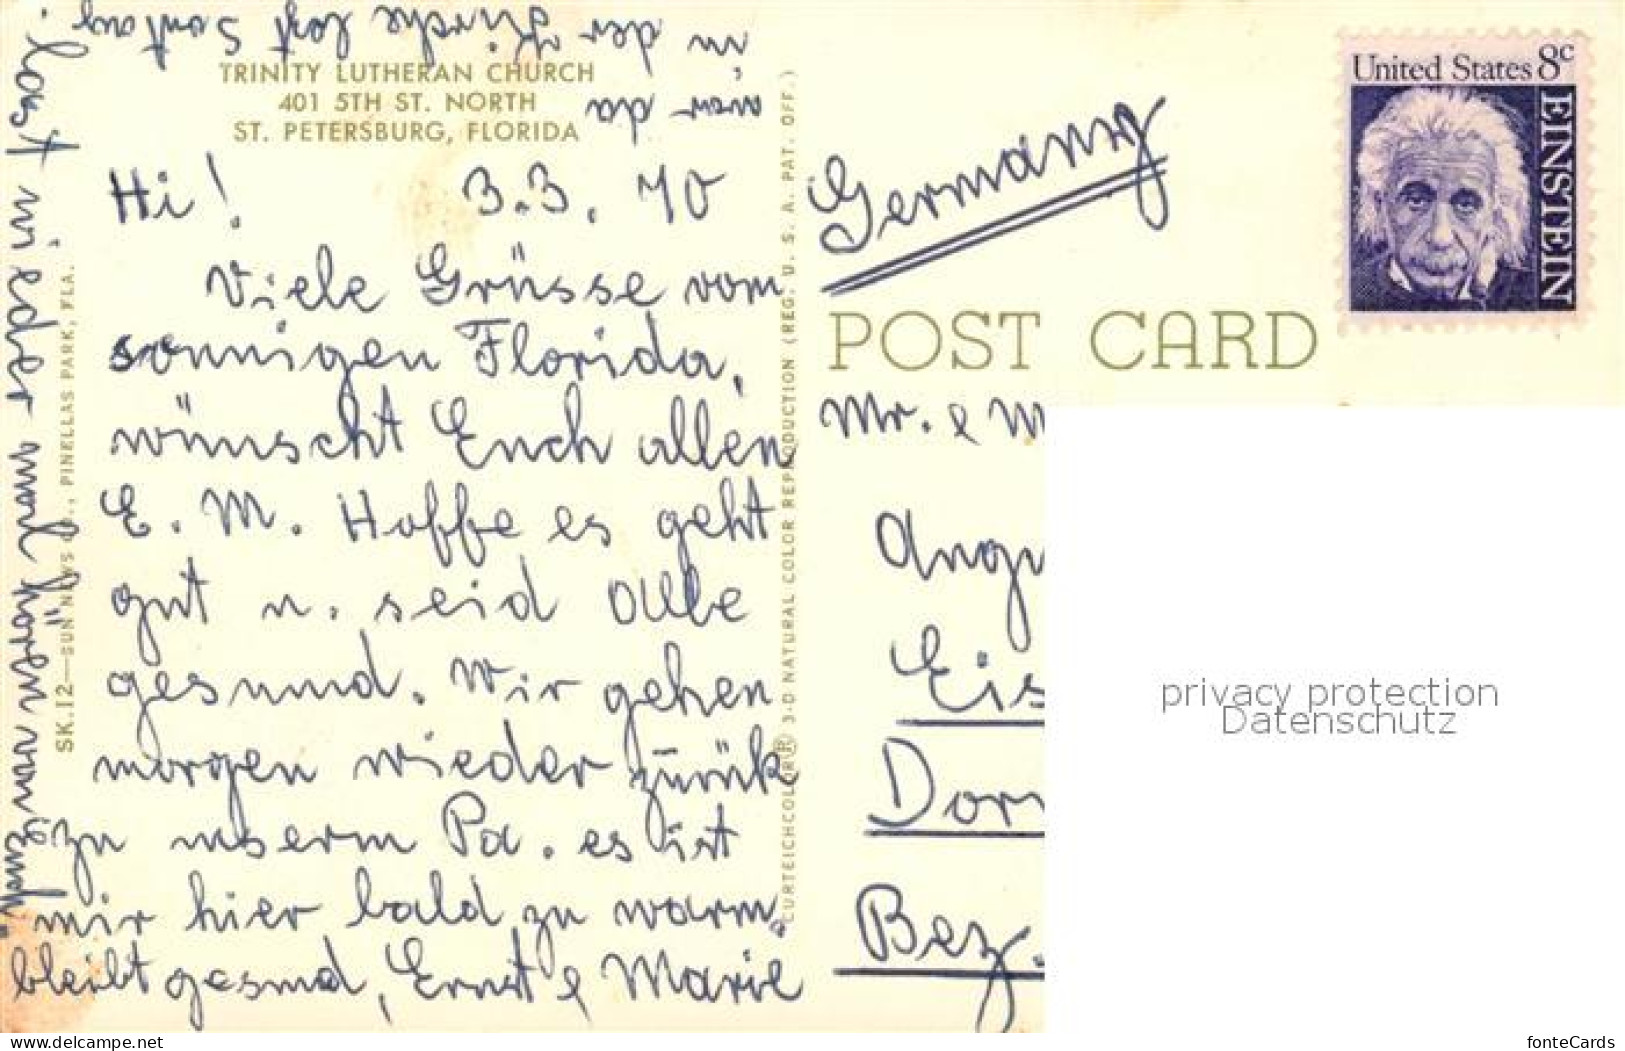 TRINITY LUTHERAN CHURCH
401 5TH ST. NORTH
ST. PETERSBURG, FLORIDA
Hi! 3.3.70
Viele Grüsse vom
sonnigen Florida,
wünscht Euch allen
E. M. Hoffe es geht
gut u. seid Alle
gesund. Wir gehen
morgen wieder zurük
zu unserm Pa. es ist
mir hier bald zu warm.
bleibt gesund, Ernst & Marie
last wieder mal hören von euch
war da
in der Kirche letzt Sontag.
SK.12—SUN NEWS CO., PINELLAS PARK, FLA.
CURTEICHCOLOR® 3-D NATURAL COLOR REPRODUCTION (REG. U. S. A. PAT. OFF.)
Germany
United States 8c
EINSTEIN
POST CARD
Mr. & M
Angu
Eis
Dor
Bez.
privacy protection
Datenschutz
www.ansichtskarten-center.de
fonteCards